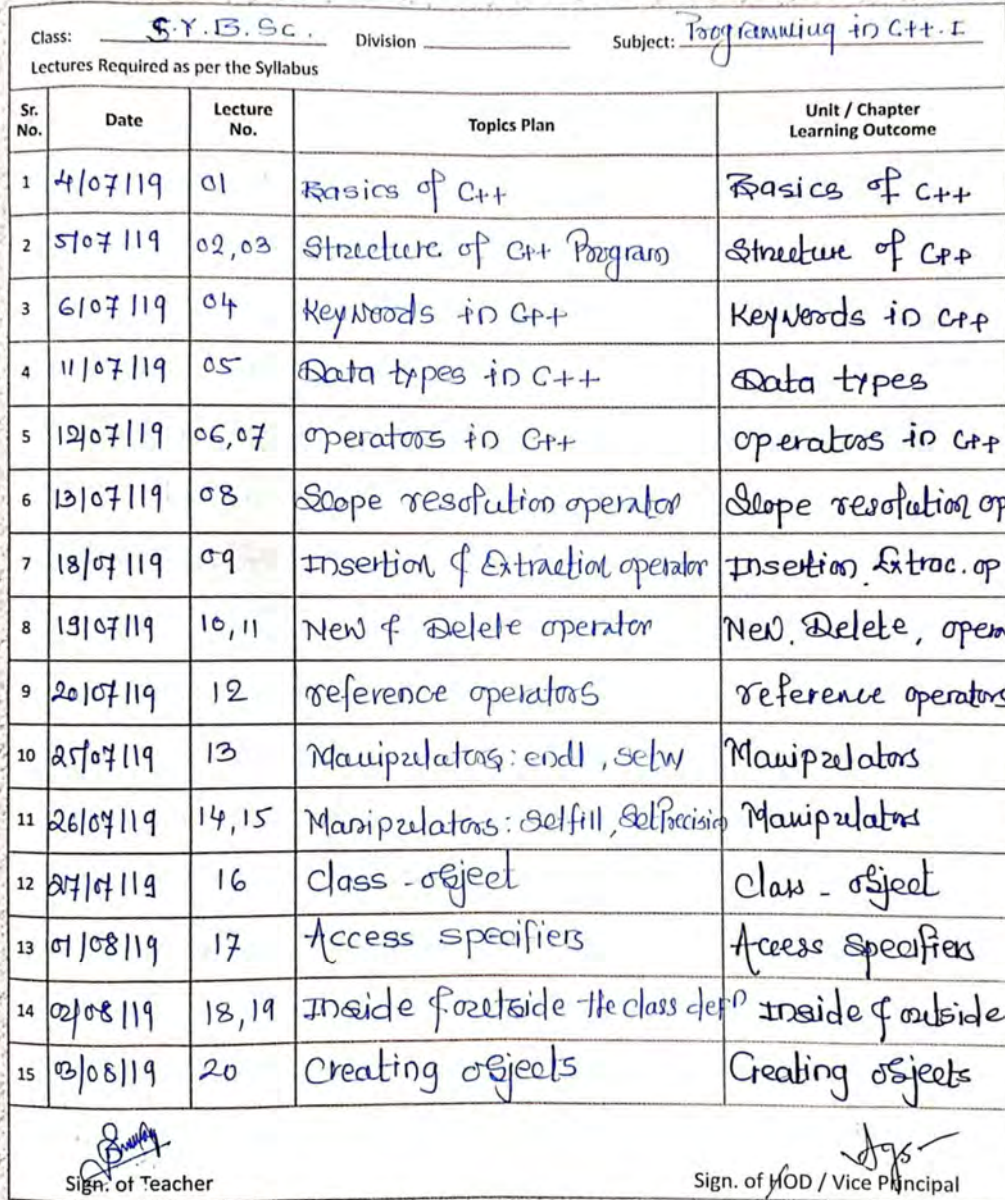 Class: S.Y.B.Sc. Division Subject: Programming in C++ I
Lectures Required as per the Syllabus
Sr. No. Date Lecture No. Topics Plan Unit / Chapter Learning Outcome
1 4/07/19 01 Basics of C++ Basics of C++
2 5/07/19 02,03 Structure of C++ Program Structure of CPP
3 6/07/19 04 Keywords in C++ Keywords in CPP
4 11/07/19 05 Data types in C++ Data types
5 12/07/19 06,07 operators in C++ operators in CPP
6 13/07/19 08 Scope resolution operator Scope resolution op
7 18/07/19 09 Insertion & Extraction operator Insertion. Extrac. op
8 19/07/19 10,11 New & Delete operator New, Delete, opera
9 20/07/19 12 reference operators reference operators
10 25/07/19 13 Manipulators: endl, setw Manipulators
11 26/07/19 14,15 Manipulators: setfill, SetPrecision Manipulators
12 27/07/19 16 Class - object Class - object
13 01/08/19 17 Access specifiers Access Specifiers
14 02/08/19 18,19 Inside & outside the class defn Inside & outside
15 03/08/19 20 Creating objects Creating objects
Sign. of Teacher Sign. of HOD / Vice Principal